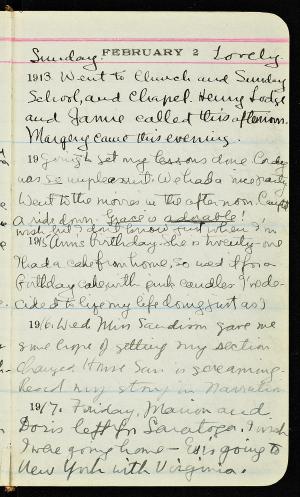 Sunday. FEBRUARY 2 Lovely.
1913 Went to Church and Sunday
School, and Chapel. Henry Lodge
and Jamie called this afternoon.
Margery came this evening.
19 get my lessons done
was so unpleasant. We had a nice party
Went to the movies in the afternoon. Caught
a ride down. Grace is adorable!
wish but I don't know just when I'm
1915 Anne's Birthday. She is twenty-one
I had a cake from home, so used it for a
Birthday cake with pink candles I've de-
cided to live my life doing just as I
1916. Wed Miss Sandison gave me
some hope of getting my section
changed. House Sam is screaming.
heard my story in Narration
1917. Friday, Marion and
Doris left for Saratoga. I wish
I were going home - is going to
New York with Virginia.